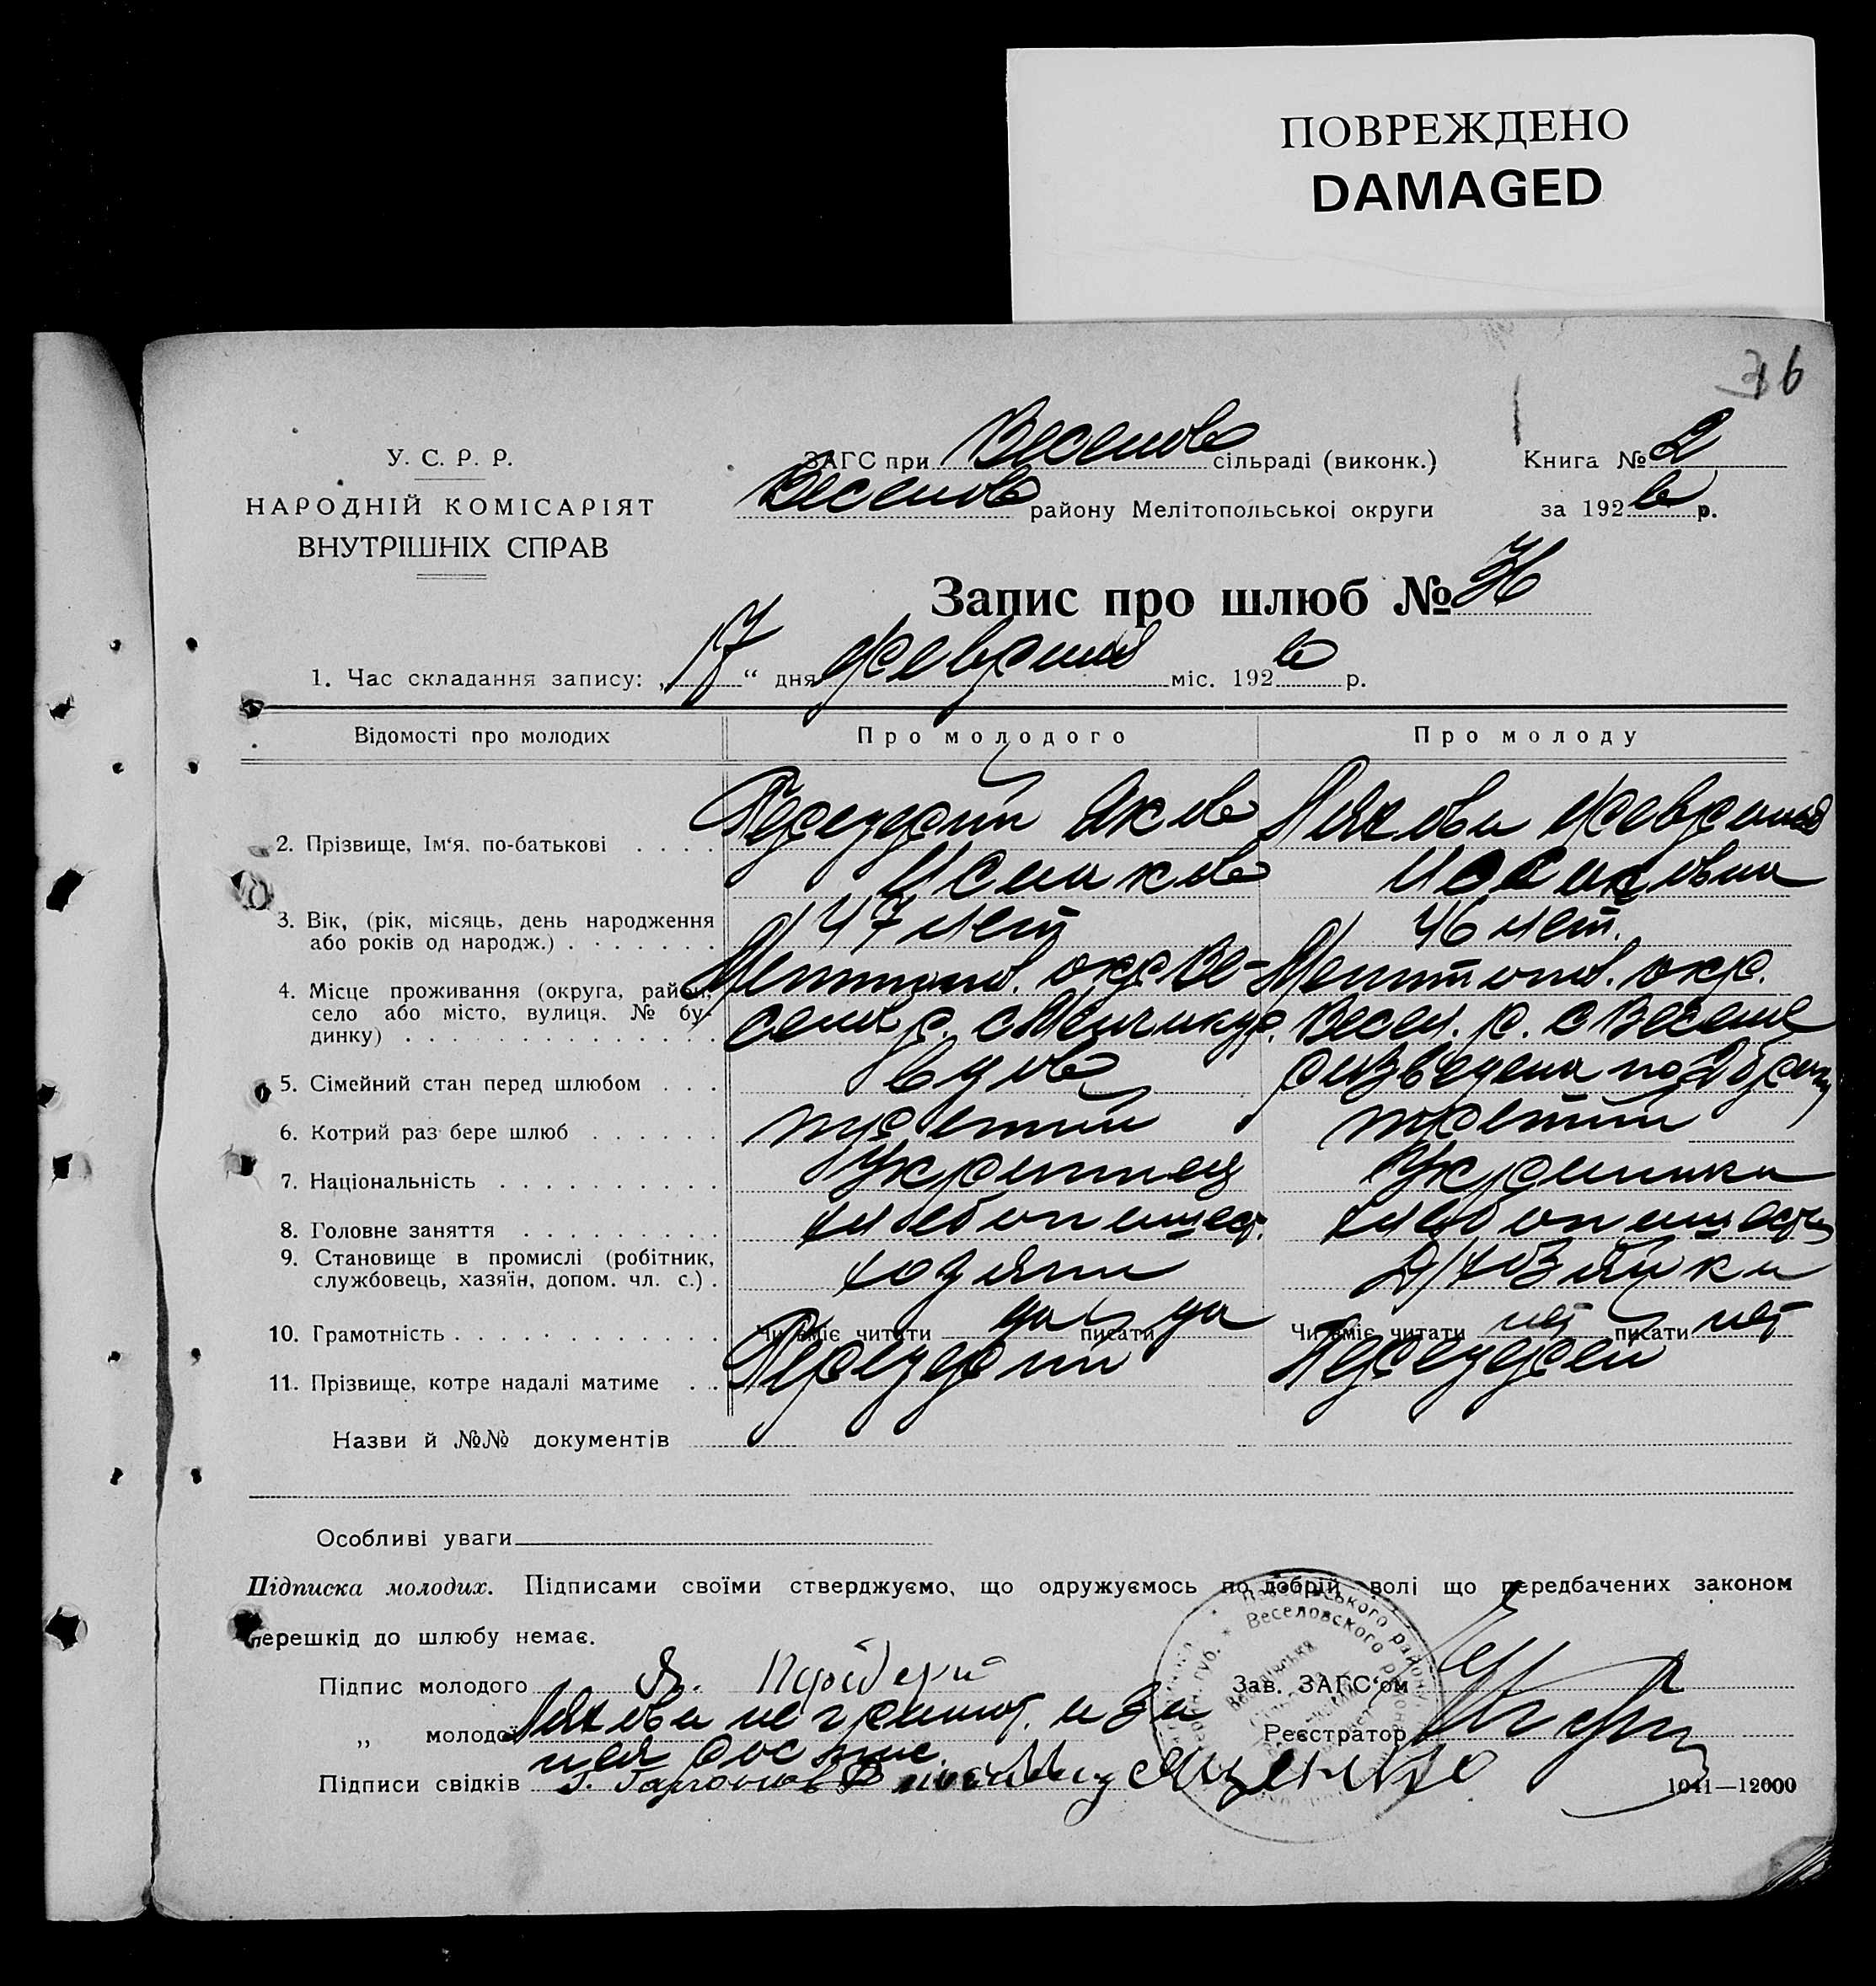 ПОВРЕЖДЕНО
DAMAGED
36
У. С. Р. Р.
НАРОДНІЙ КОМІСАРІЯТ
ВНУТРІШНІХ СПРАВ
ЗАГС при Весело сільраді (виконк.)
Весело району Мелітопольської округи
Книга № 2
за 1926 р.
Запис про шлюб № 36
1. Час складання запису: „17“ дня февраля міс. 1926 р.
Відомості про молодих
Про молодого
Про молоду
2. Прізвище, Ім'я, по-батькові . . . .
Передерий Яков
Исаков
Исаковна
3. Вік, (рік, місяць, день народження
або років од народж.) . . . . . . .
47 лет
46 лет.
4. Місце проживання (округа, район,
село або місто, вулиця, № бу-
динку) . . . . . . . . . . . . . .
Мелитопол. окр. Ве-
селов р. с
Мелитопол. окр.
Весел. р. с Веселое
5. Сімейний стан перед шлюбом . . .
вдов
разведена по 2 браку
6. Котрий раз бере шлюб . . . . . .
третий
третий
7. Національність . . . . . . . . . .
Украинец
Украинка
8. Головне заняття . . . . . . . . .
хлебопашест.
хлебопашество
9. Становище в промислі (робітник,
службовець, хазяїн, допом. чл. с.) .
хозяин
д/хозяйка
10. Грамотність . . . . . . . . . . . .
Чи вміє читати да писати да
Чи вміє читати нет писати нет
11. Прізвище, котре надалі матиме . .
Передерий
Передерей
Назви й №№ документів
Особливі уваги
Підписка молодих. Підписами своїми стверджуємо, що одружуємось по добрій волі що передбачених законом
перешкід до шлюбу немає.
Підпис молодого Я. Передерий
Зав. ЗАГС'ом
„ молодої неграмот. и за
Реєстратор
нея рос
Підписи свідків
Ященко
Веселовского
1041—12000